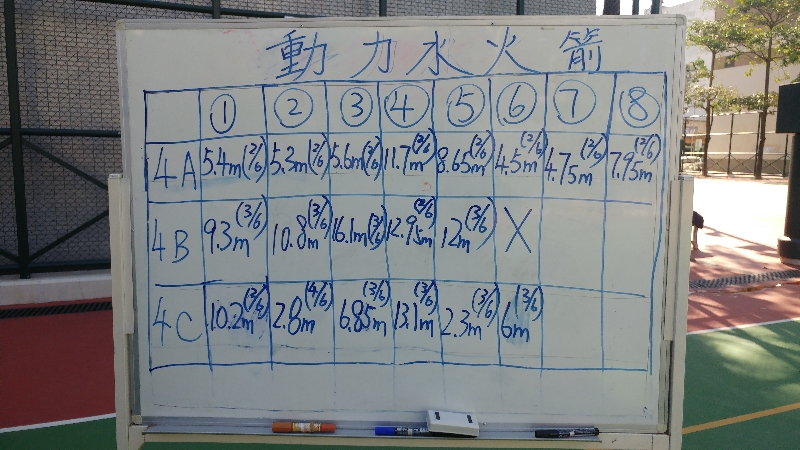 動力水火箭
① ② ③ ④ ⑤ ⑥ ⑦ ⑧
4A 5.4m(2/6) 5.3m(2/6) 5.6m(2/6) 11.7m(2/6) 8.65m(2/6) 4.5m(2/6) 4.75m(2/6) 7.95m(2/6)
4B 9.3m(3/6) 10.8m(3/6) 16.1m(3/6) 12.95m(3/6) 12m(3/6) X
4C 10.2m(3/6) 2.8m(4/6) 6.85m(3/6) 13.1m(3/6) 2.3m(3/6) 6m(3/6)